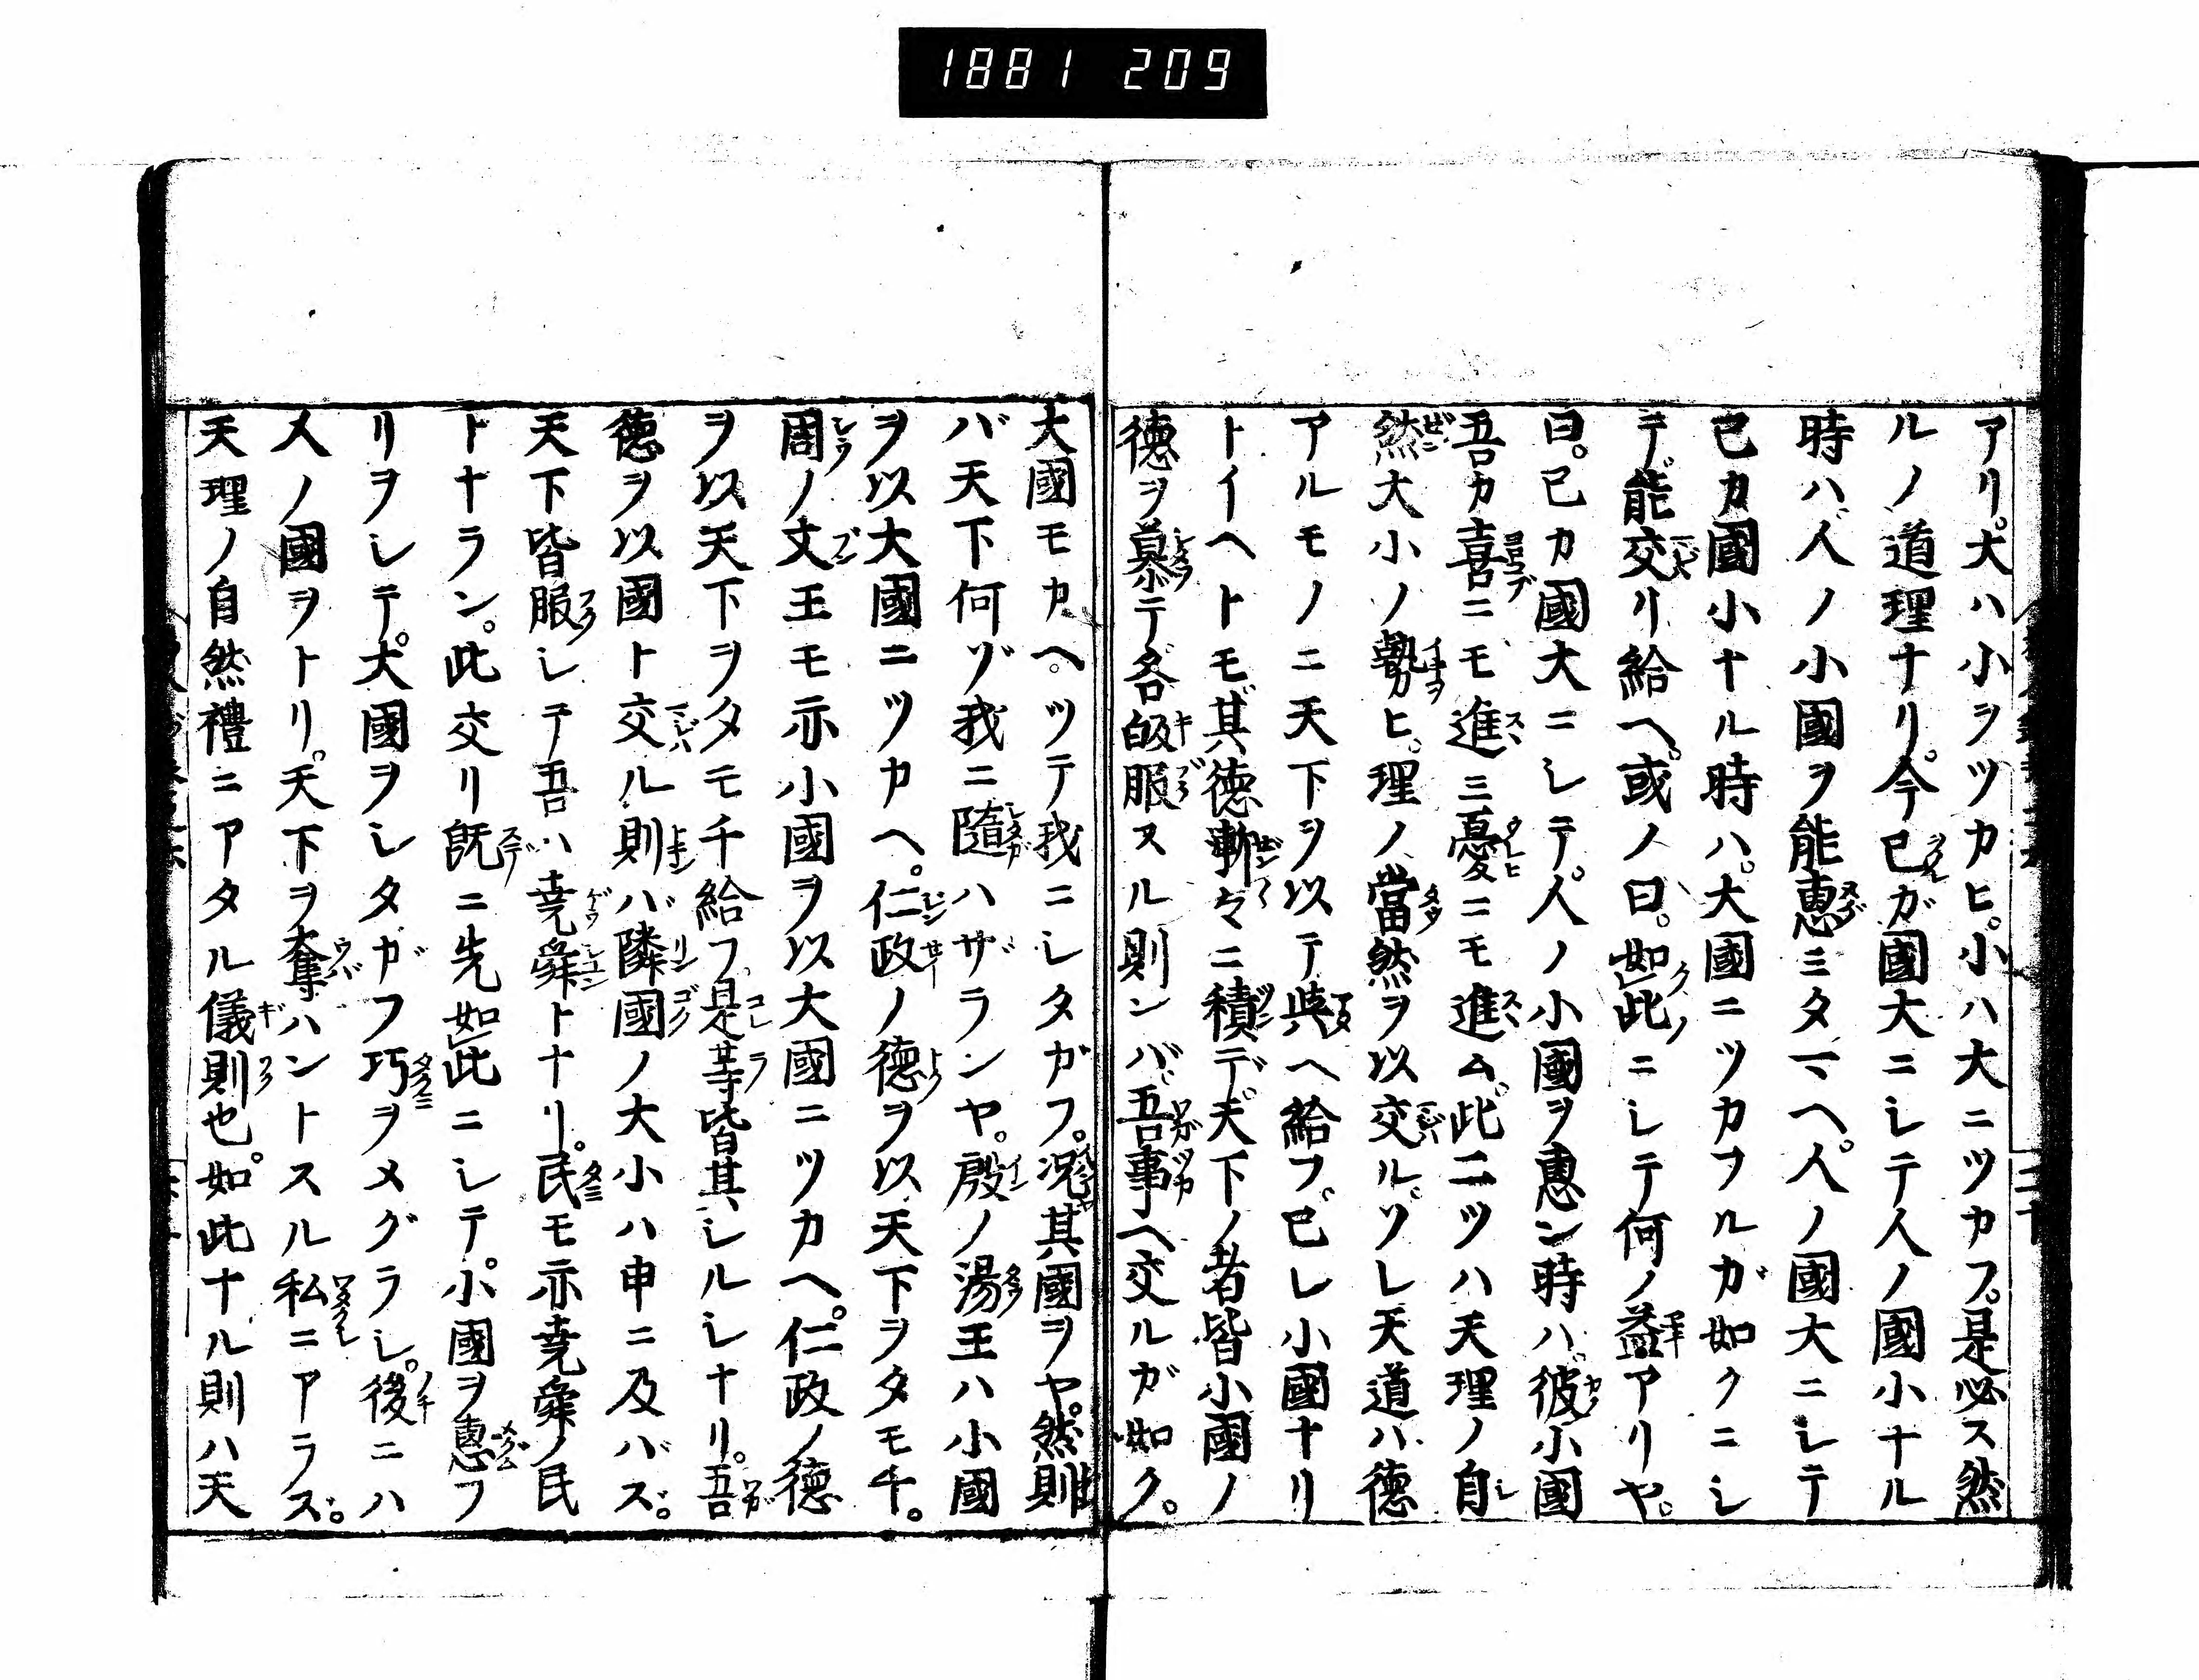 1881 209
アリ。大ハ小ヲツカヒ。小ハ大ニツカフ。是必ス然
ルノ道理ナリ。今已ガ國大ニシテ人ノ國小ナル
時ハ、人ノ小國ヲ能惠ミタマヘ。人ノ國大ニシテ
已カ國小ナル時ハ。大國ニツカフルガ如クニシ
テ。能交リ給ヘ。或ノ曰。如此ニシテ何ノ益アリヤ。
曰。已カ國大ニシテ。人ノ小國ヲ惠ン時ハ。彼小國
吾カ喜ニモ進ミ憂ニモ進ム。此二ツハ天理ノ自
然大小ノ勢ヒ。理ノ當然ヲ以交ル。ソレ天道ハ德
アルモノニ天下ヲ以テ與ヘ給フ。已レ小國ナリ
トイヘトモ。其德漸々ニ積デ。天下ノ者皆小國ノ
德ヲ慕テ各皈服スル則ンバ。吾事ヘ交ルガ如ク。
大國モカヘツテ我ニシタガフ。況其國ヲヤ。然則
バ天下何ゾ我ニ隨ハザランヤ。殷ノ湯王ハ小國
ヲ以大國ニツカヘ。仁政ノ德ヲ以天下ヲタモチ。
周ノ文王モ亦小國ヲ以大國ニツカヘ。仁政ノ德
ヲ以天下ヲタモチ給フ。是等皆其シルシナリ。吾
德ヲ以國ト交ル則ハ゛隣國ノ大小ハ申ニ及バズ。
天下皆服シテ吾ハ堯舜トナリ。民モ亦堯舜ノ民
トナラン。此交リ既ニ先如此ニシテ。小國ヲ惠フ
リヲシテ。大國ヲシタガフ巧ヲメグラシ。後ニハ
人ノ國ヲトリ。天下ヲ奪ハントスル私ニアラズ。
天理ノ自然禮ニアタル儀則也。如此ナル則ハ天